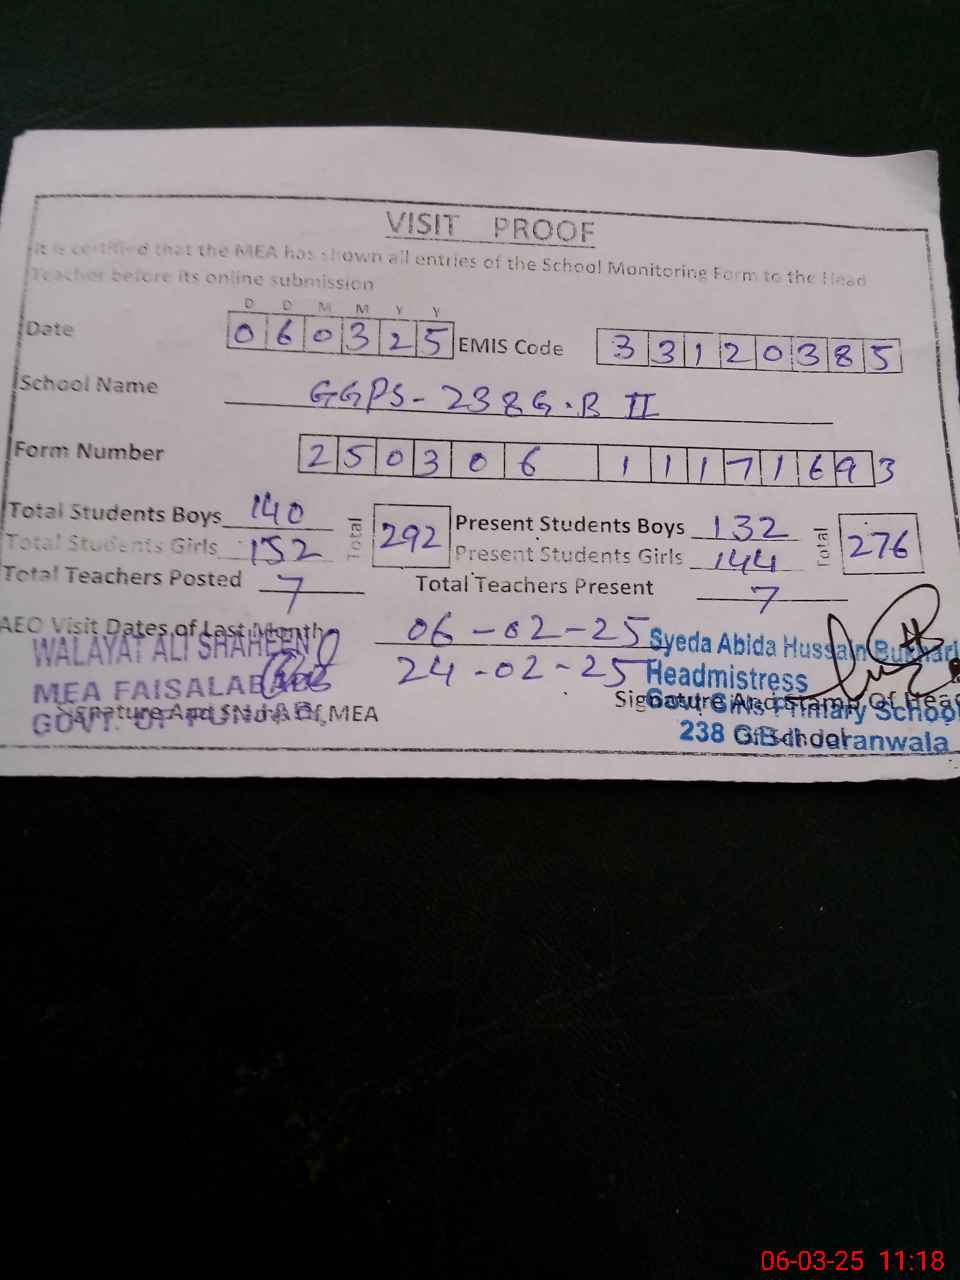 VISIT PROOF
It is certified that the MEA has shown all entries of the School Monitoring Form to the Head
Teacher before its online submission
D D M M Y Y
Date 060325 EMIS Code 33120385
School Name GGPS-238G.B II
Form Number 250306 11171693
Total Students Boys 140 Total 292 Present Students Boys 132 Total 276
Total Students Girls 152 Present Students Girls 144
Total Teachers Posted 7 Total Teachers Present 7
AEO Visit Dates of Last Month 06-02-25
24-02-25
WALAYAT ALI SHAHEEN
MEA FAISALABAD
GOVT. OF PUNJAB
Signature And Stamp Of MEA
Syeda Abida Hussain Bukhari
Headmistress
Govt. Girls Primary School
238 G.B Jaranwala
Signature And Stamp Of Head
Of School
06-03-25 11:18